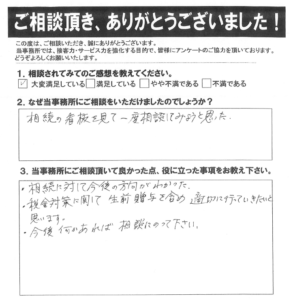 ご相談頂き、ありがとうございました！
この度は、ご相談いただき、誠にありがとうございます。
当事務所では、接客力・サービス力を強化する目的で、皆様にアンケートのご協力を頂いております。
どうぞよろしくお願いいたします。
1. 相談されてみてのご感想を教えてください。
✓大変満足している □満足している □やや不満である □不満である
2. なぜ当事務所にご相談をいただけましたのでしょうか？
相続の看板を見て一度相談してみようと思った.
3. 当事務所にご相談頂いて良かった点、役に立った事項をお教え下さい。
・相続に対して今後の方向がわかった.
・税金対策に関して 生前贈与を含め 適切に行っていきたいと
思います.
・今後何かあれば 相談にのって下さい.